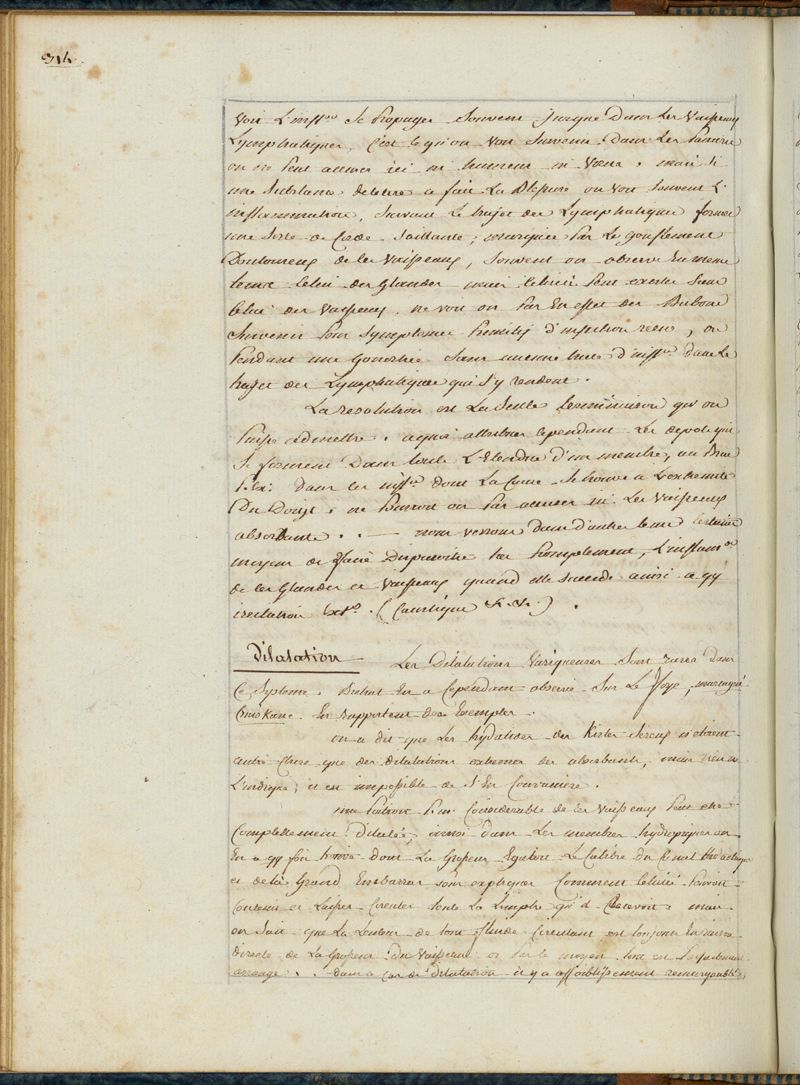 314.
Voit L'infl.on Se Propager Souvent Jusque Dans Les Vaisseaux
Lymphatiques, C'est ce qu'on Voit Survenir Dans Les
on ne Peut accuser ici ni humeur ni Virus. mais Si
une Substance deletere a fait La Blessure on Voit Souvent L'
inflammation, Suivant Le trajet des Lymphatiques former
une Sorte de Corde Saillante; marquée Par Le Gonflement
Douloureux de les Vaisseaux, Souvent on observe En meme
tems Celui des Glandes mais Celui-ci Peut exister Sans
Celui des Vaisseaux. ne voit on Pas En effet des Bubons
Survenir Pour Symptomes Primitifs d'infection, ou
Pendant une Gonorrhée Sans aucune trace d'infl.on dans Le
trajet des Lymphatiques qui S'y rendent.
La resolution est La Seule terminaison qu'on
Puisse admettre. a quoi attribuer Cependant Les depots qui
Se forment Dans toute L'Etendue d'un membre, au Bras
P. Ex: Dans les infl.on dont La Cause Se trouve a L'extremité
Du Doigt. ne Pourroit on Pas accuser ici Les Vaisseaux
absorbants. . — nous verrons Dans d'autres tems Certains
moyens de faire Disparoitre tres Promptement, L'inflam.on
de les Glandes et Vaisseaux quand elle Succede ainsi a qq
irritation ext.re. (Caustiques &c. &c.) .
Dilatation — Les Dilatations Variqueuses Sont rares dans
Ce Systeme. Bichat En a Cependant observé Sur Le foye, mascagni
Cruiskanc En rapportent des Exemples.
on a dit que Les hydatides des Kistes Sereux n'etoient
autre Chose que des dilatations extremes des absorbants, mais rien ne
L'indique, il est impossible de S'En Convaincre.
une Portion P. m. Considerable de les Vaisseaux Peut etre
Complettement Dilatée; ainsi dans Les membres hydropiques on
En a qq fois trouvé dont La Grosseur Egaloit Le Calibre du Canal thorachique
et dela Grand Embarras Pour expliquer Comment Celui-ci Pouvoit
Contenir et Laisser Circuler toute La Limphe qu'il Recevoit. mais
on Sait que La Lenteur de tout fluide Circulant est toujours En raison
directe de La Grosseur Du Vaisseau; or Par Ce moyen tout est
arrangé. . . dans Ce Cas de Dilatation il y a affoiblissement remarquable